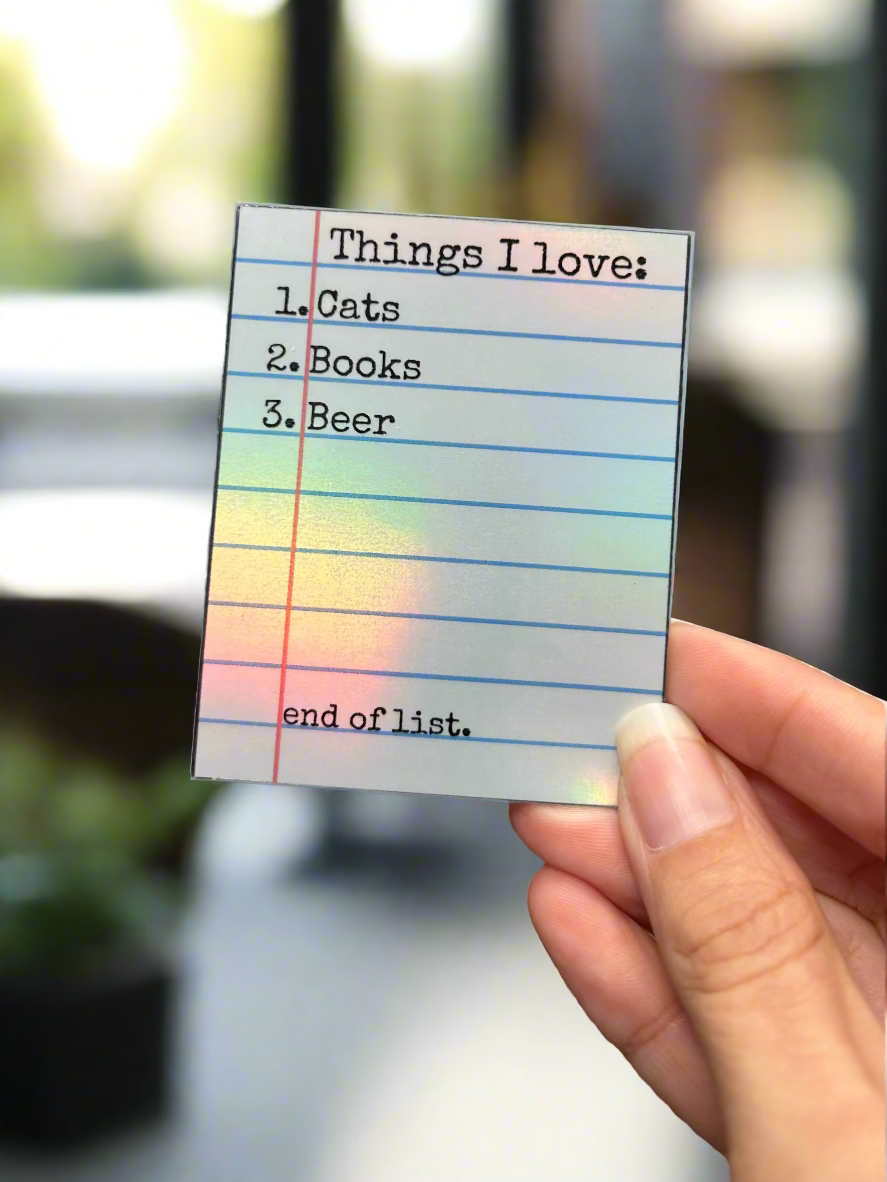 Things I love:
1. Cats
2. Books
3. Beer
end of list.